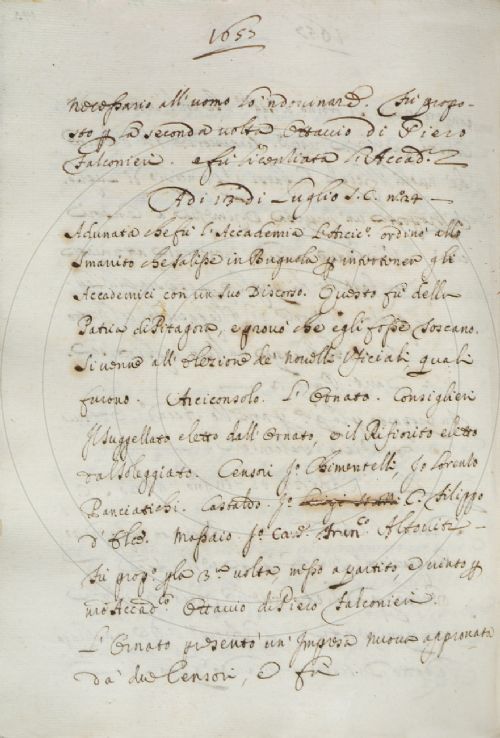 1655
necessario all'uomo lo'ndovinare. Fù propo-
sto p la seconda volta Ottavio di Piero
Falconieri. e fu licenziata l'Accad.ª
Adi 13 di Luglio S.C. nº 24
Adunata che fù l'Accademia l'Arcicº ordinò allo
Smarrito che salisse in Bugnola p intertener gli
Accademici con un suo Discorso. Questo fù della
Patria di Pitagora, e provò che egli fosse Toscano.
Si venne all'elezione de novelli Ufiziali quali
furono. Arciconsolo. L'Ornato. Consiglieri
Il Suggellato eletto dall'Ornato, e il Rifiorito eletto
dal Soleggiato. Censori Sº Chimentelli, Sº Lorenzo
Panciatichi. Castaldo. Sº C. Filippo
d'Elce. Massaio Sº Cav. Franº Altoviti
Fù propº p la 3ª volta, messo a partito, e vinto p
nrº Accadco Ottavio di Piero Falconieri
L'Ornato presentò un'Impresa nuova approvata
da due Censori, e fù